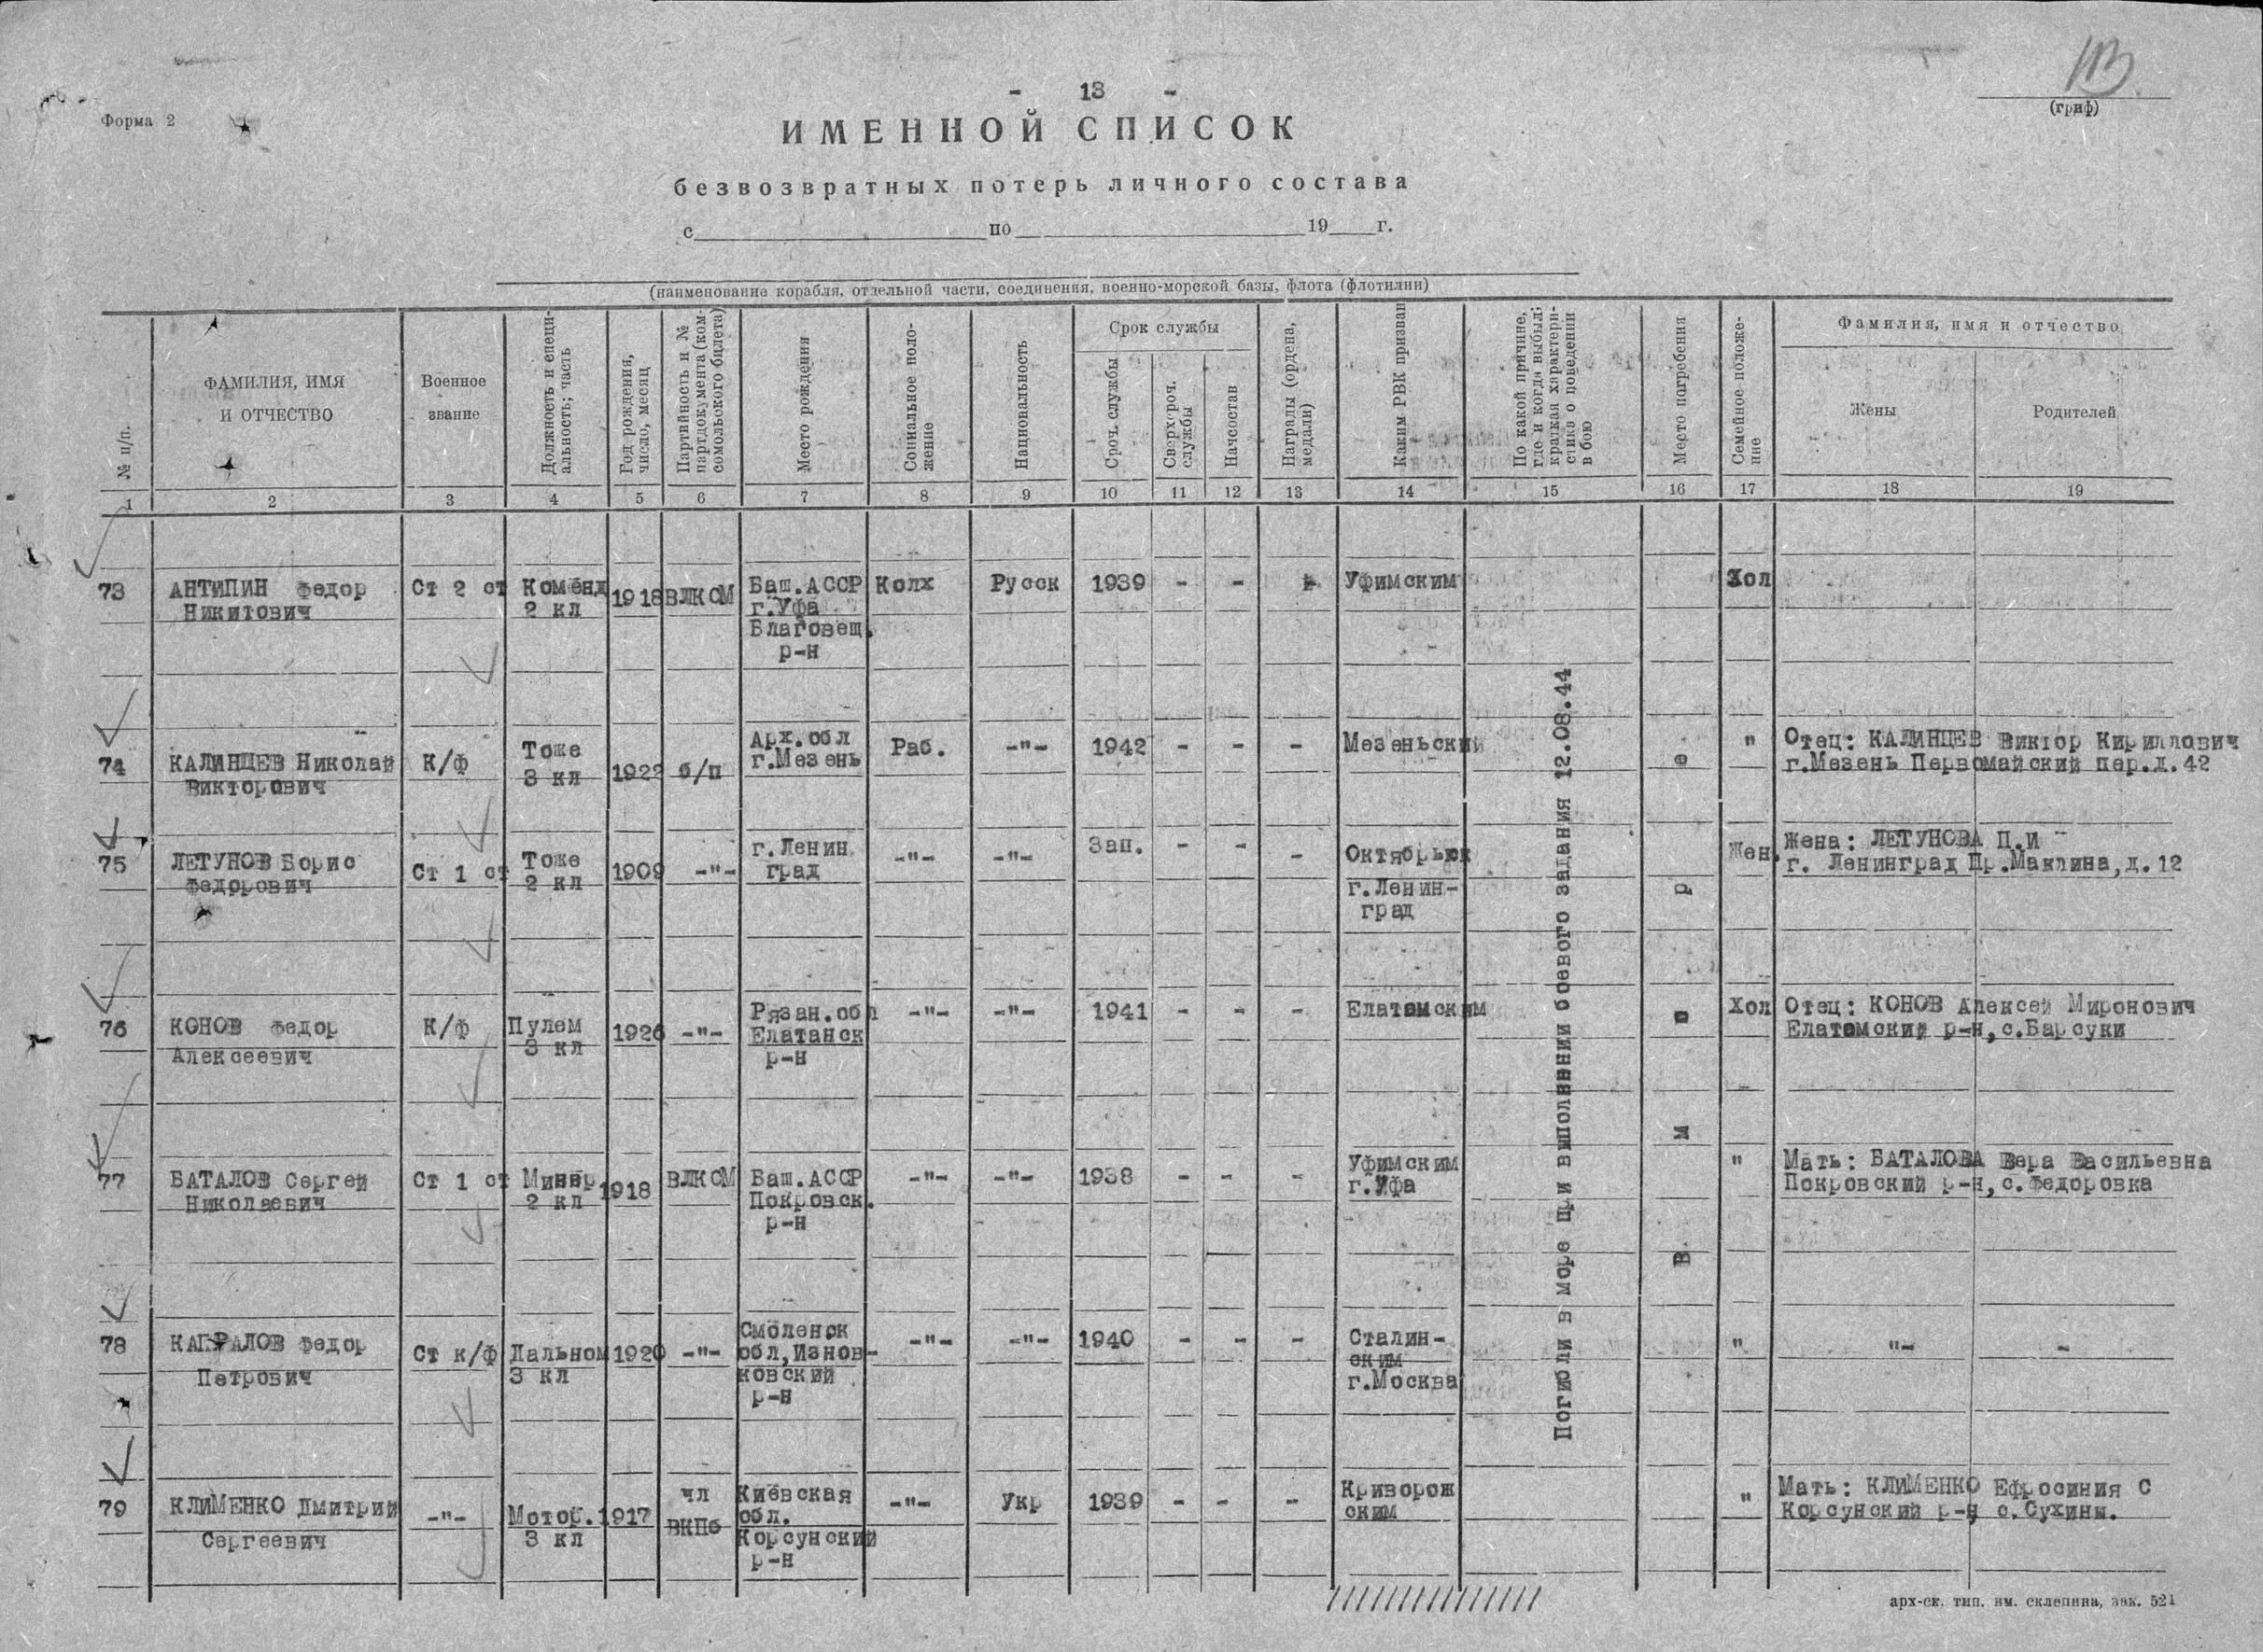 - 13 -
113
Форма 2
(гриф)
ИМЕННОЙ СПИСОК
безвозвратных потерь личного состава
с по 19 г.
(наименование корабля, отдельной части, соединения, военно-морской базы, флота (флотилии)
№ п/п.
ФАМИЛИЯ, ИМЯ
И ОТЧЕСТВО
Военное
звание
Должность и специ-
альность; часть
Год рождения,
число, месяц
Партийность и №
партдокумента (ком-
сомольского билета)
Место рождения
Социальное поло-
жение
Национальность
Срок службы
Сроч. службы
Сверхсроч.
службы
Начсостав
Награды (ордена,
медали)
Каким РВК призван
По какой причине,
где и когда выбыл;
краткая характери-
стика о поведении
в бою
Место погребения
Семейное положе-
ние
Фамилия, имя и отчество
Жены
Родителей
1 2 3 4 5 6 7 8 9 10 11 12 13 14 15 16 17 18 19
73 АНТИПИН Федор Ст 2 ст Коменд 1918 ВЛКСМ Баш.АССР Колх Русск 1939 - - - Уфимским Хол
Никитович 2 кл г.Уфа
Благовещ.
р-н
74 КАЛИНЦЕВ Николай К/ф Тоже 1922 б/п Арх.обл Раб. -"- 1942 - - - Мезеньский " Отец: КАЛИНЦЕВ Виктор Кириллович
Викторович 3 кл г.Мезень г.Мезень Первомайский пер.д.42
75 ЛЕТУНОВ Борис Ст 1 ст Тоже 1909 -"- г.Ленин -"- -"- Зап. - - - Октябрьск Жен. Жена: ЛЕТУНОВА П.И
Федорович 2 кл град г.Ленин- г. Ленинград Пр.Маклина,д.12
град
76 КОНОВ Федор К/ф Пулем 1926 -"- Рязан.обл -"- -"- 1941 - - - Елатомским Хол Отец: КОНОВ Алексей Миронович
Алексеевич 3 кл Елатанск Елатомский р-н,с.Барсуки
р-н
77 БАТАЛОВ Сергей Ст 1 ст Минер 1918 ВЛКСМ Баш.АССР -"- -"- 1938 - - - Уфимским " Мать: БАТАЛОВА Вера Васильевна
Николаевич 2 кл Покровск. г.Уфа Покровский р-н,с.Федоровка
р-н
78 КАПРАЛОВ Федор Ст к/ф Дальном 1920 -"- Смоленск -"- -"- 1940 - - - Сталин- " "- -
Петрович 3 кл обл,Изнов- ским
ковский г.Москва
р-н
79 КЛИМЕНКО Дмитрий -"- Мотор. 1917 чл Киевская -"- Укр 1939 - - - Криворож " Мать: КЛИМЕНКО Ефросиния С
Сергеевич 3 кл ВКПб обл. ским Корсунский р-н, с.Сухины.
Корсунский
р-н
Погибли в море при выполнении боевого задания 12.08.44
В море
////////////////
арх-ск. тип. им. склепина, зак. 521